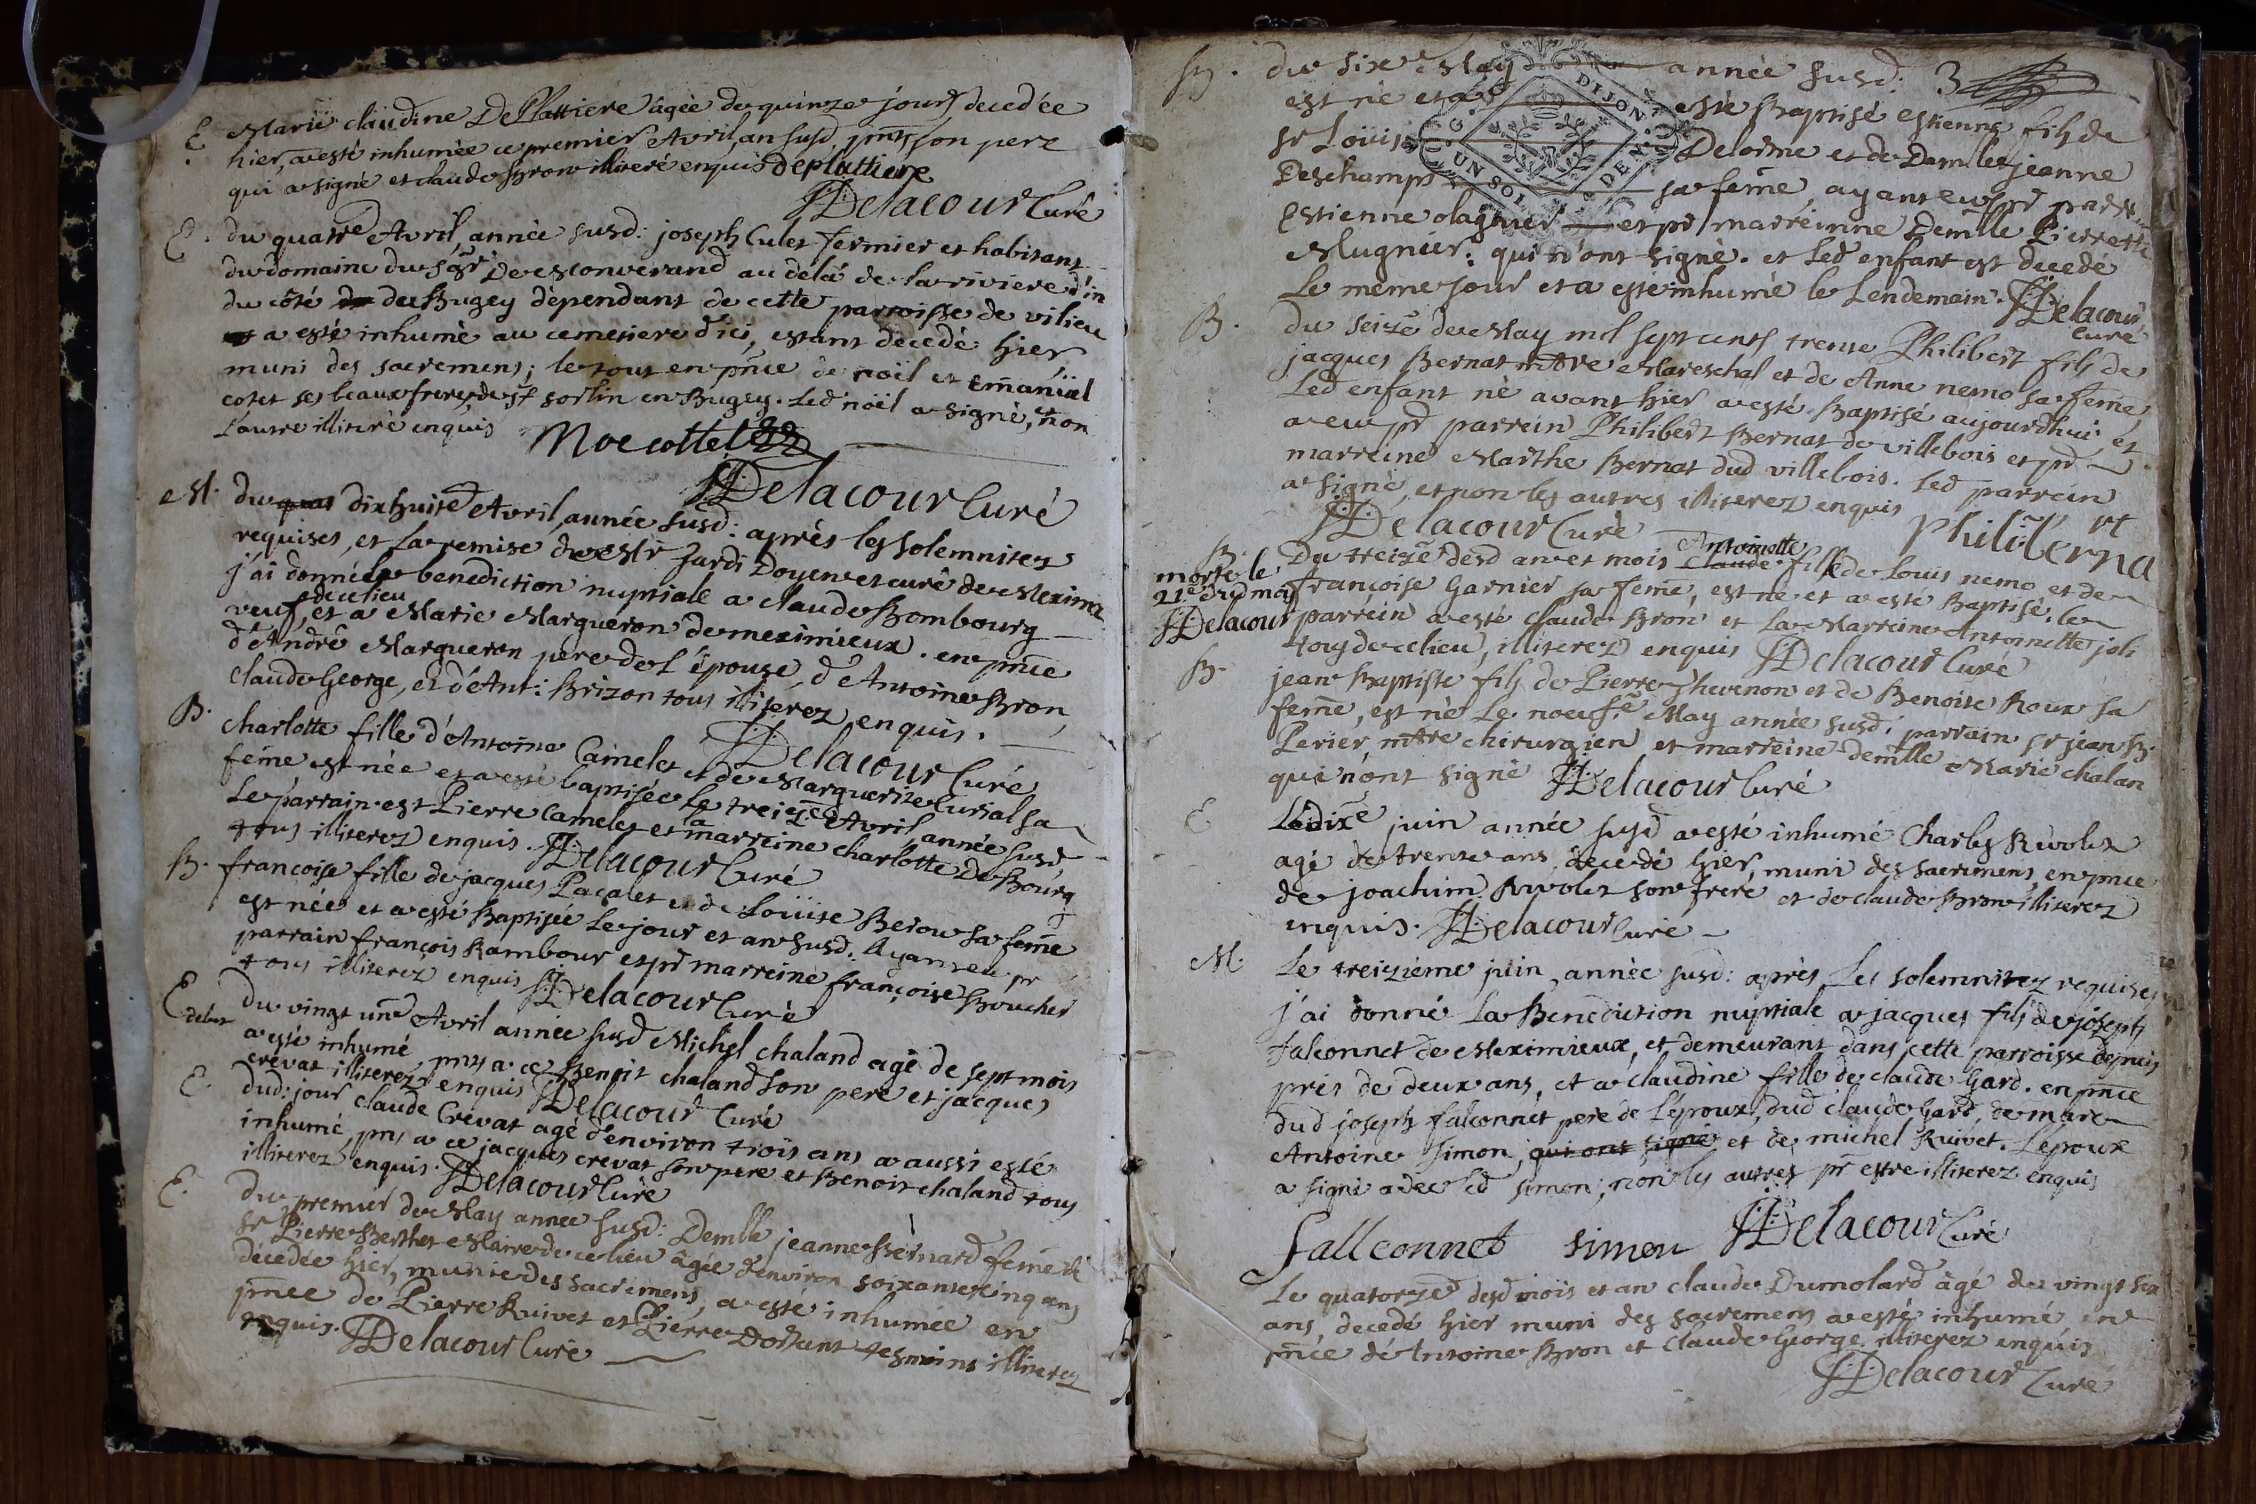 E. Marie claudine Deplattiere âgée de quinze jours decedée
hier, a esté inhumée ce premier Avril, an susd. pnts son pere
qui a signé et claude Bron illiteré enquis deplattiere
Delacour Curé
E. du quatre Avril, année susd: joseph Culet fermier et habitant
du domaine du sgr De Monverand au délà de la riviere d'in
du côté de Bugey dépendant de cette parroisse de vilieu
a esté inhumé au cemetiere d'ici, estant decedé hier
muni des sacremens; le tout en pnce de noël et Emanüel
cotet ses beaux freres, de st sorlin en Bugey. led noël a signé, et non
l'autre illiteré enquis Noe cottet
Delacour Curé
M. du quat dixhuite Avril, année susd: après les solemnitez
requises, et la remise de Mr Jardi Doyen et curé de Meximieux
j'ai donné la benediction nuptiale a claude Bombourg
veuf, de ce lieu et a Marie Marqueron de meximieux. en pnce
d'André Marqueron pere de l'épouse, d'Antoine Bron,
claude George, et d'Ant: Brizon tous illiterez enquis.
Delacour Curé
B. charlotte fille d'Antoine Camelet et de Marguerite Curial sa
feme est née et a esté baptisée le treize Avril année susd
Le parrain est Pierre Camelet et la marreine charlotte De Bourg
tous illiterez enquis. Delacour Curé
B. françoise fille de jacques Pacalet et de Loüise Berou sa feme
est née et a esté Baptisée le jour et an susd. Ayant eu pr
parrain françois Rambour et pr marreine françoise Boucher
tous illiterez enquis Delacour Curé
E. du vingt une Avril année susd Michel chaland agé de sept mois
debet a esté inhumé, pnts a ce Benoit chaland son pere et jacques
crévat illiterez enquis Delacour Curé
E. dud: jour claude Crévat agé d'environ trois ans a aussi esté
inhumé, pnts a ce jacques crevat son pere et Benoit chaland tous
illiterez enquis. Delacour Curé
E. du premier de May année susd: Demlle jeanne Bernard feme de
sr Pierre Berthet Maire de ce lieu âgée d'environ soixante cinq ans
décedée hier, munie des sacremens, a esté inhumée en
pnce de Pierre Ruivet et Pierre Dostunt tesmoins illiterez
enquis. Delacour Curé
B. du sixe May année susd: 3
est né et a esté Baptisé estienne fils de
sr Loüis Delorme et de Demlle jeanne
Deschamps sa feme, ayant eu pr parr
Estienne olagnier et pr marréinne Demlle Pierrette
Mugnier: qui n'ont signé. et led enfant est decedé
le meme jour et a esté inhumé le lendemain. Delacour
Curé
DIJON
G. UN SOL DEN.
B. du seize de May mil sept cents trente Philibert fils de
jacques Bernat mtre Mareschal et de Anne nemo sa feme,
led enfant né avant hier a esté Baptisé aujourdhui, et
a eu pr parrein Philibert Bernat de villebois et pr
marreine Marthe Bernat dud villebois. led parrein
a signé, et non les autres illiterez enquis
Delacour Curé Philibert Berna
B. Du treize desd an et mois Antoinette Claude fille de Louis nemo et de
morte le françoise Garnier sa feme, est né et a esté Baptisé, le
21e dud may
Delacour parrein a esté claude Bron et la Marreine Antoinette joli
tous de ce lieu, illiterez enquis Delacour Curé
B. jean Baptiste fils de Pierre Thevenon et de Benoite Roux sa
feme, est né le noeufe May année susd, parrain sr jean B.
Perier, mtre chirurgien et marreine demlle Marie chalan
qui n'ont signé Delacour Curé
E. Le dixe juin année susd a esté inhumé Charles Rivolet
agé de trente ans decedé hier, muni des sacremens, en pnce
de joachim Rivolet son frere et de claude Bron illiterez
enquis. Delacour Curé
M. Le treizième juin, année susd: après les solemnitez requises
j'ai donné la Benediction nuptiale a jacques fils de joseph
falconnet de Meximieux, et demeurant dans cette parroisse depuis
près de deux ans, et a claudine fille de claude Gard. en pnce
dud joseph falconnet pere de l'époux, dud claude Gard, de marc
Antoine simon, qui ont signé et de michel Ruivet. L'epoux
a signé avec led simon, non les autres pr estre illiterez enquis
falleconnet simon Delacour Curé
Le quatorze desd mois et an claude Dumolard âgé de vingt six
ans, decedé hier muni des sacremens a esté inhumé en
pnce de Antoine Bron et Claude George illiterez enquis
Delacour Curé